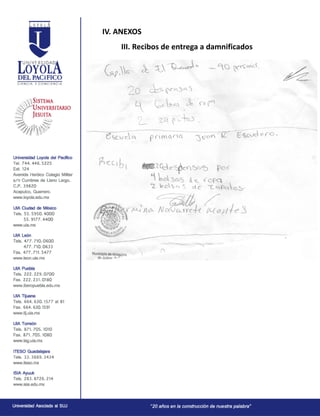 UNIVERSIDAD
LOYOLA
DEL PACÍFICO
CIENCIA Y CONCIENCIA
SISTEMA
UNIVERSITARIO
JESUITA
Universidad Loyola del Pacífico
Tel. 744. 446. 5225
Ext. 124
Avenida Heróico Colegio Militar
s/n Cumbres de Llano Largo,
C.P. 39820
Acapulco, Guerrero.
www.loyola.edu.mx
UIA Ciudad de México
Tels. 55. 5950. 4000
55. 9177. 4400
www.uia.mx
UIA León
Tels. 477. 710. 0600
477. 710. 0633
Fax. 477. 711. 5477
www.leon.uia.mx
UIA Puebla
Tels. 222. 229. 0700
Fax. 222. 231. 0180
www.iberopuebla.edu.mx
UIA Tijuana
Tels. 664. 630. 1577 al 81
Fax. 664. 630. 1591
www.tij.uia.mx
UIA Torreón
Tels. 871. 705. 1010
Fax. 871. 705. 1080
www.lag.uia.mx
ITESO Guadalajara
Tels. 33. 3669. 3434
www.iteso.mx
ISIA Ayuuk
Tels. 283. 8728. 214
www.isia.edu.mx
IV. ANEXOS
III. Recibos de entrega a damnificados
90
20 despensas
4 de ropa
Escuela primaria Juan R. Escudero.
Recibi despensas por
4 bolsas de ropa
2 bolsas de zapatos
Navarrete
Universidad Asociada al SUJ
"20 años en la construcción de nuestra palabra"